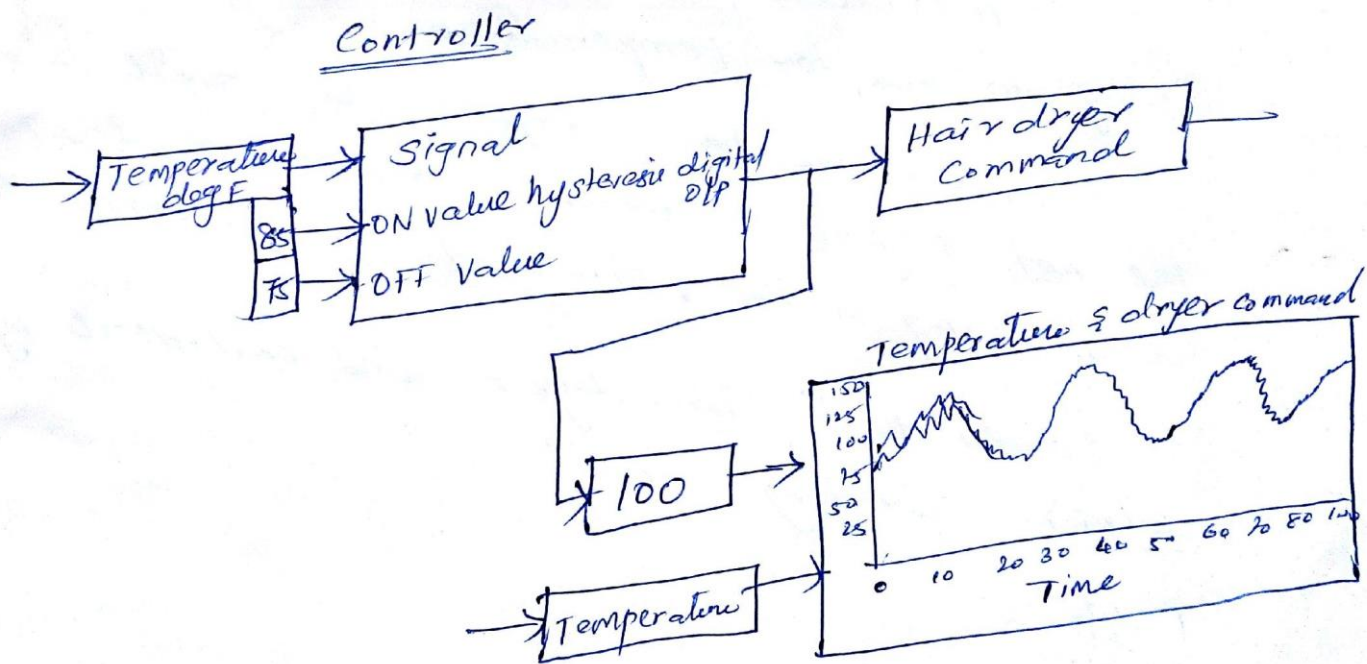 Controller
Temperature
deg F
85
75
Signal
ON value hysteresis digital
O/P
OFF Value
Hair dryer
Command
100
Temperature
Temperature & dryer command
150
125
100
75
50
25
0 10 20 30 40 50 60 70 80 100
Time